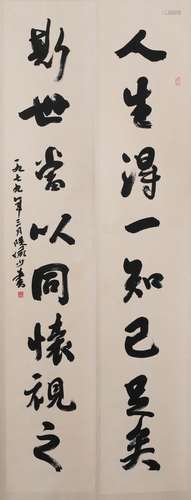 人生得一知己足矣
斯世当以同懷視之
一九七九年三月陸儼少書